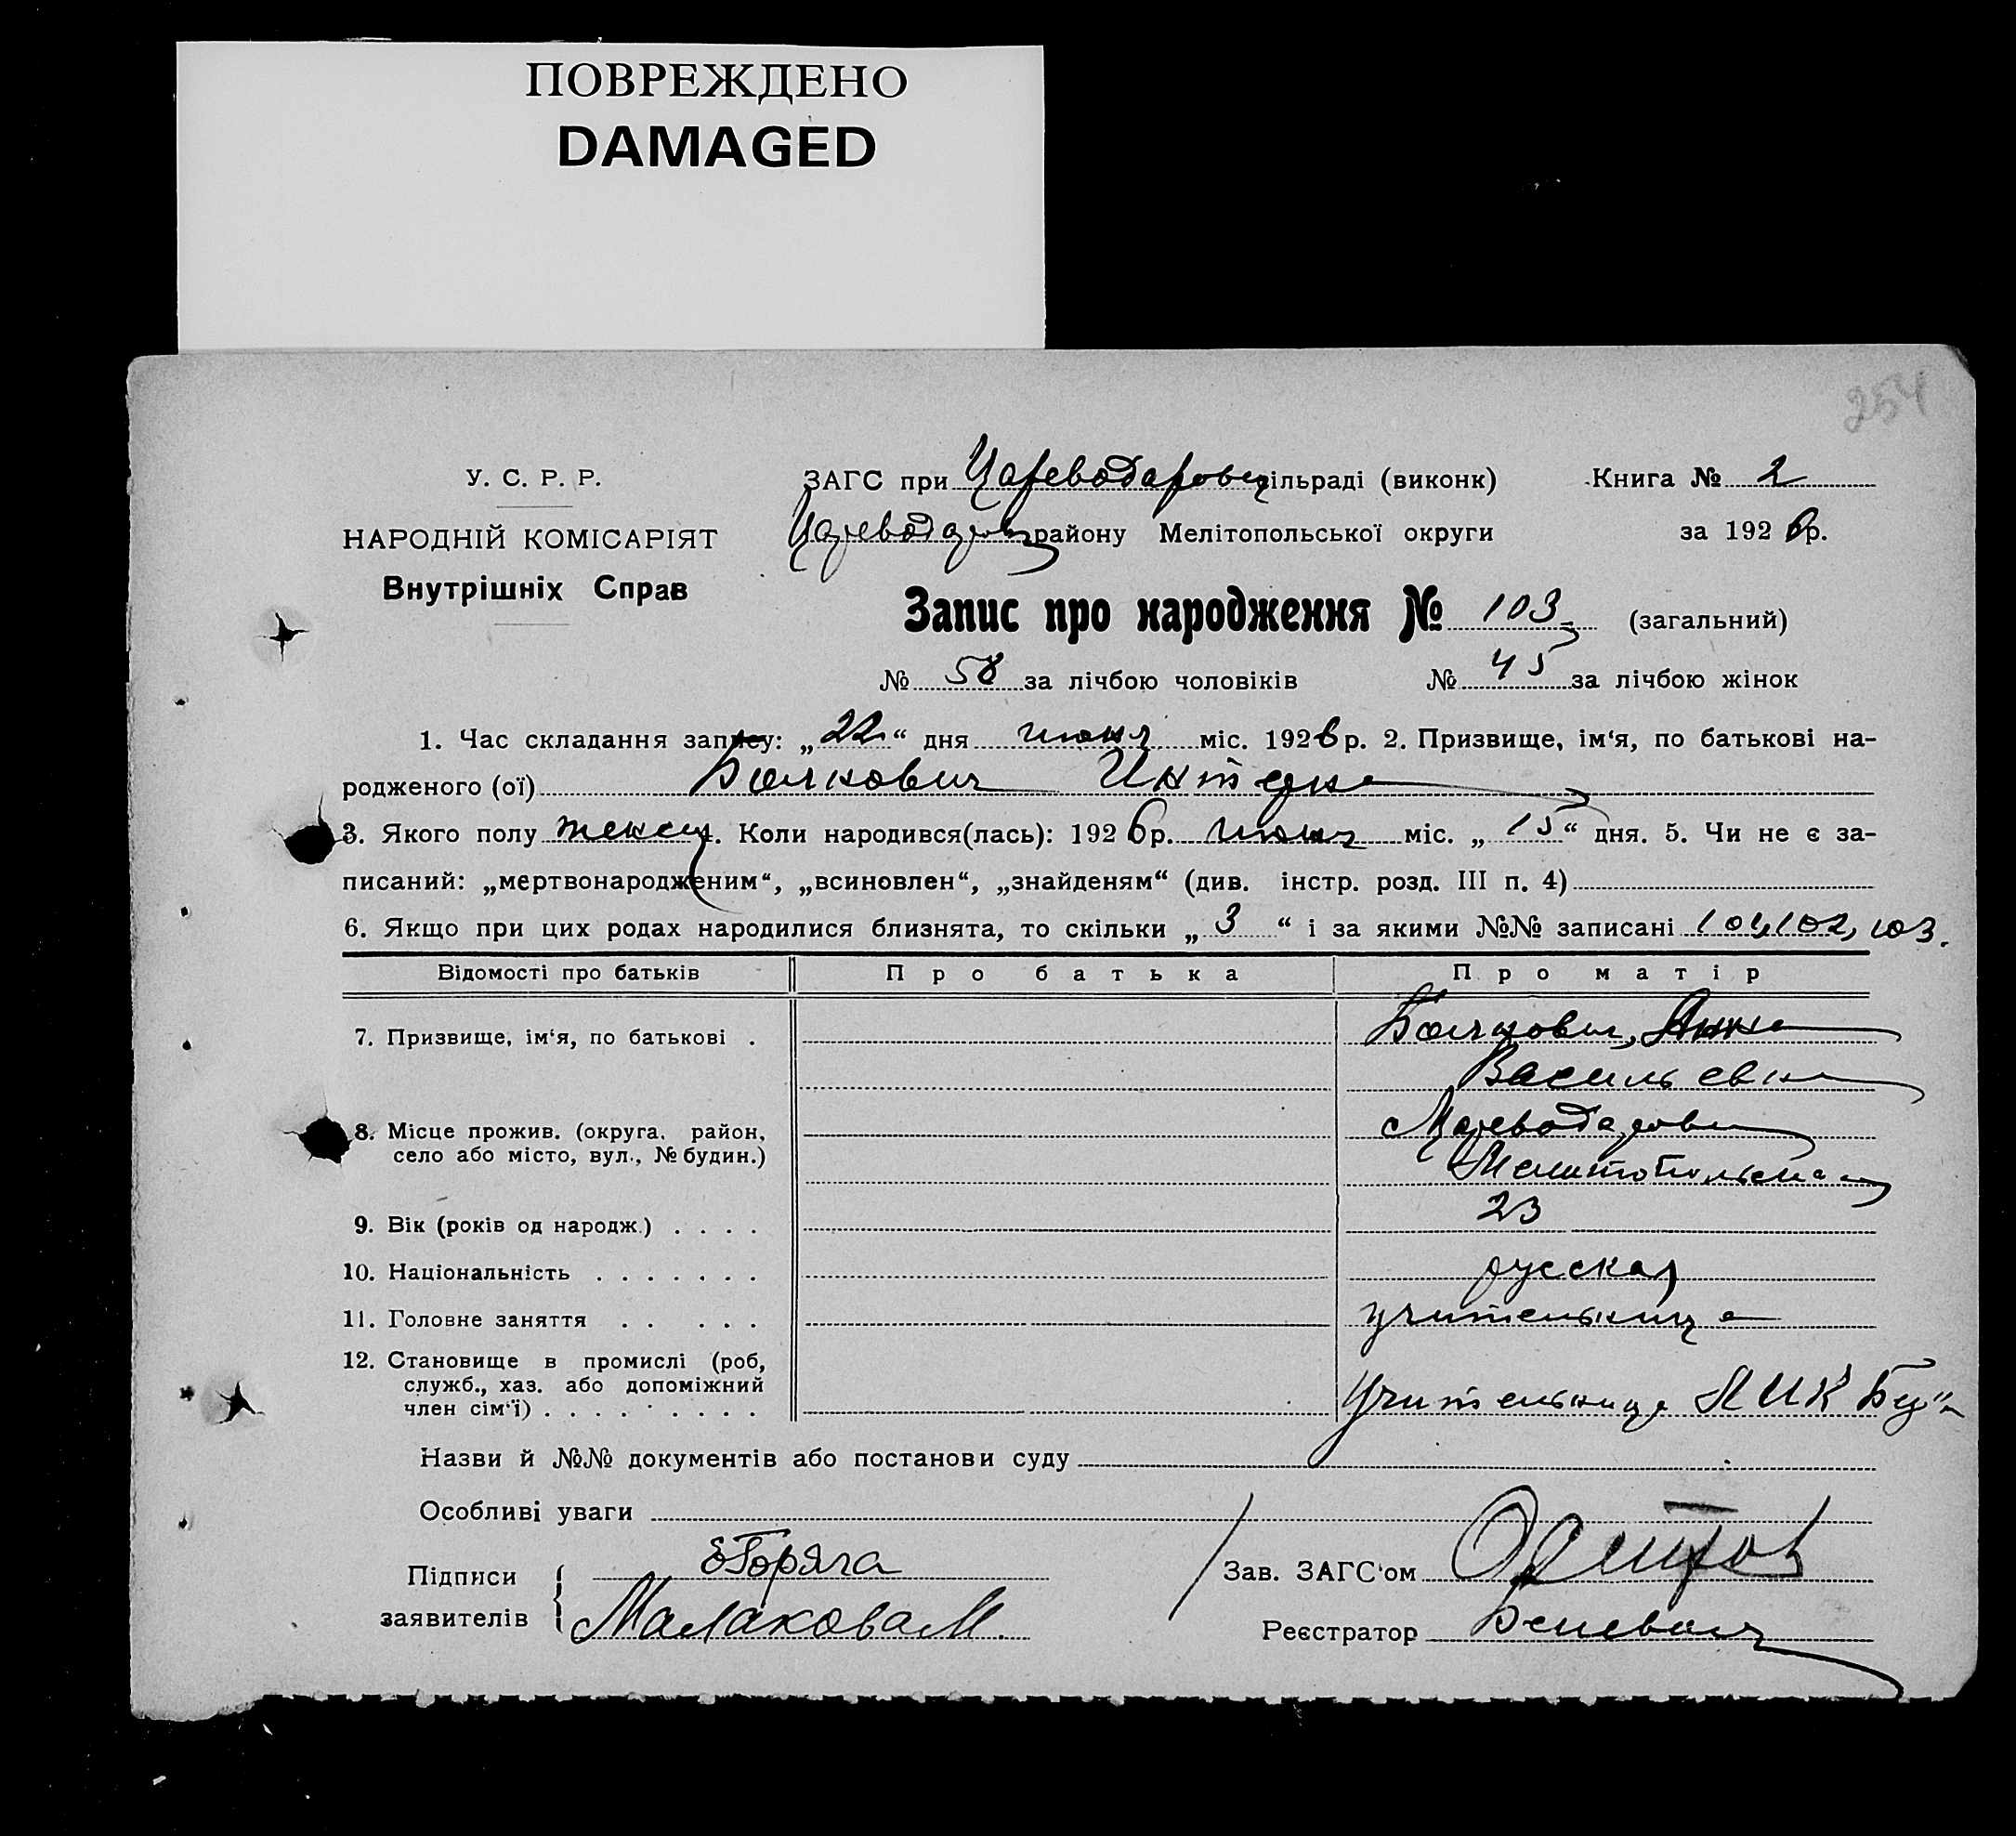 ПОВРЕЖДЕНО
DAMAGED
254
У. С. Р. Р.
НАРОДНІЙ КОМІСАРІЯТ
Внутрішніх Справ
ЗАГС при Цареводаровск сільраді (виконк)
району Мелітопольської округи
Книга № 2
за 1926 р.
Запис про народження № 103 (загальний)
№ 58 за лічбою чоловіків № 45 за лічбою жінок
1. Час складання запису: „22“ дня июня міс. 1926 р. 2. Призвище, ім‘я, по батькові на-
родженого (ої)
3. Якого полу женск 4. Коли народився(лась): 1926 р. июня міс. „15“ дня. 5. Чи не є за-
писаний: „мертвонародженим“, „всиновлен“, „знайденям“ (див. інстр. розд. III п. 4)
6. Якщо при цих родах народилися близнята, то скільки „3“ і за якими №№ записані 101, 102, 103.
Відомості про батьків Про батька Про матір
7. Призвище, ім‘я, по батькові . Анна
Васильевна
8. Місце прожив. (округа, район,
село або місто, вул., № будин.)
9. Вік (років од народж.) . . . . 23
10. Національність . . . . . . . русская
11. Головне заняття . . . . . учительница
12. Становище в промислі (роб,
служб., хаз. або допоміжний
член сім‘ї) . . . . . . . . . Учительница
Назви й №№ документів або постанови суду
Особливі уваги
Підписи
заявителів
ЕГоряча
Малакова М.
Зав. ЗАГС‘ом
Реєстратор